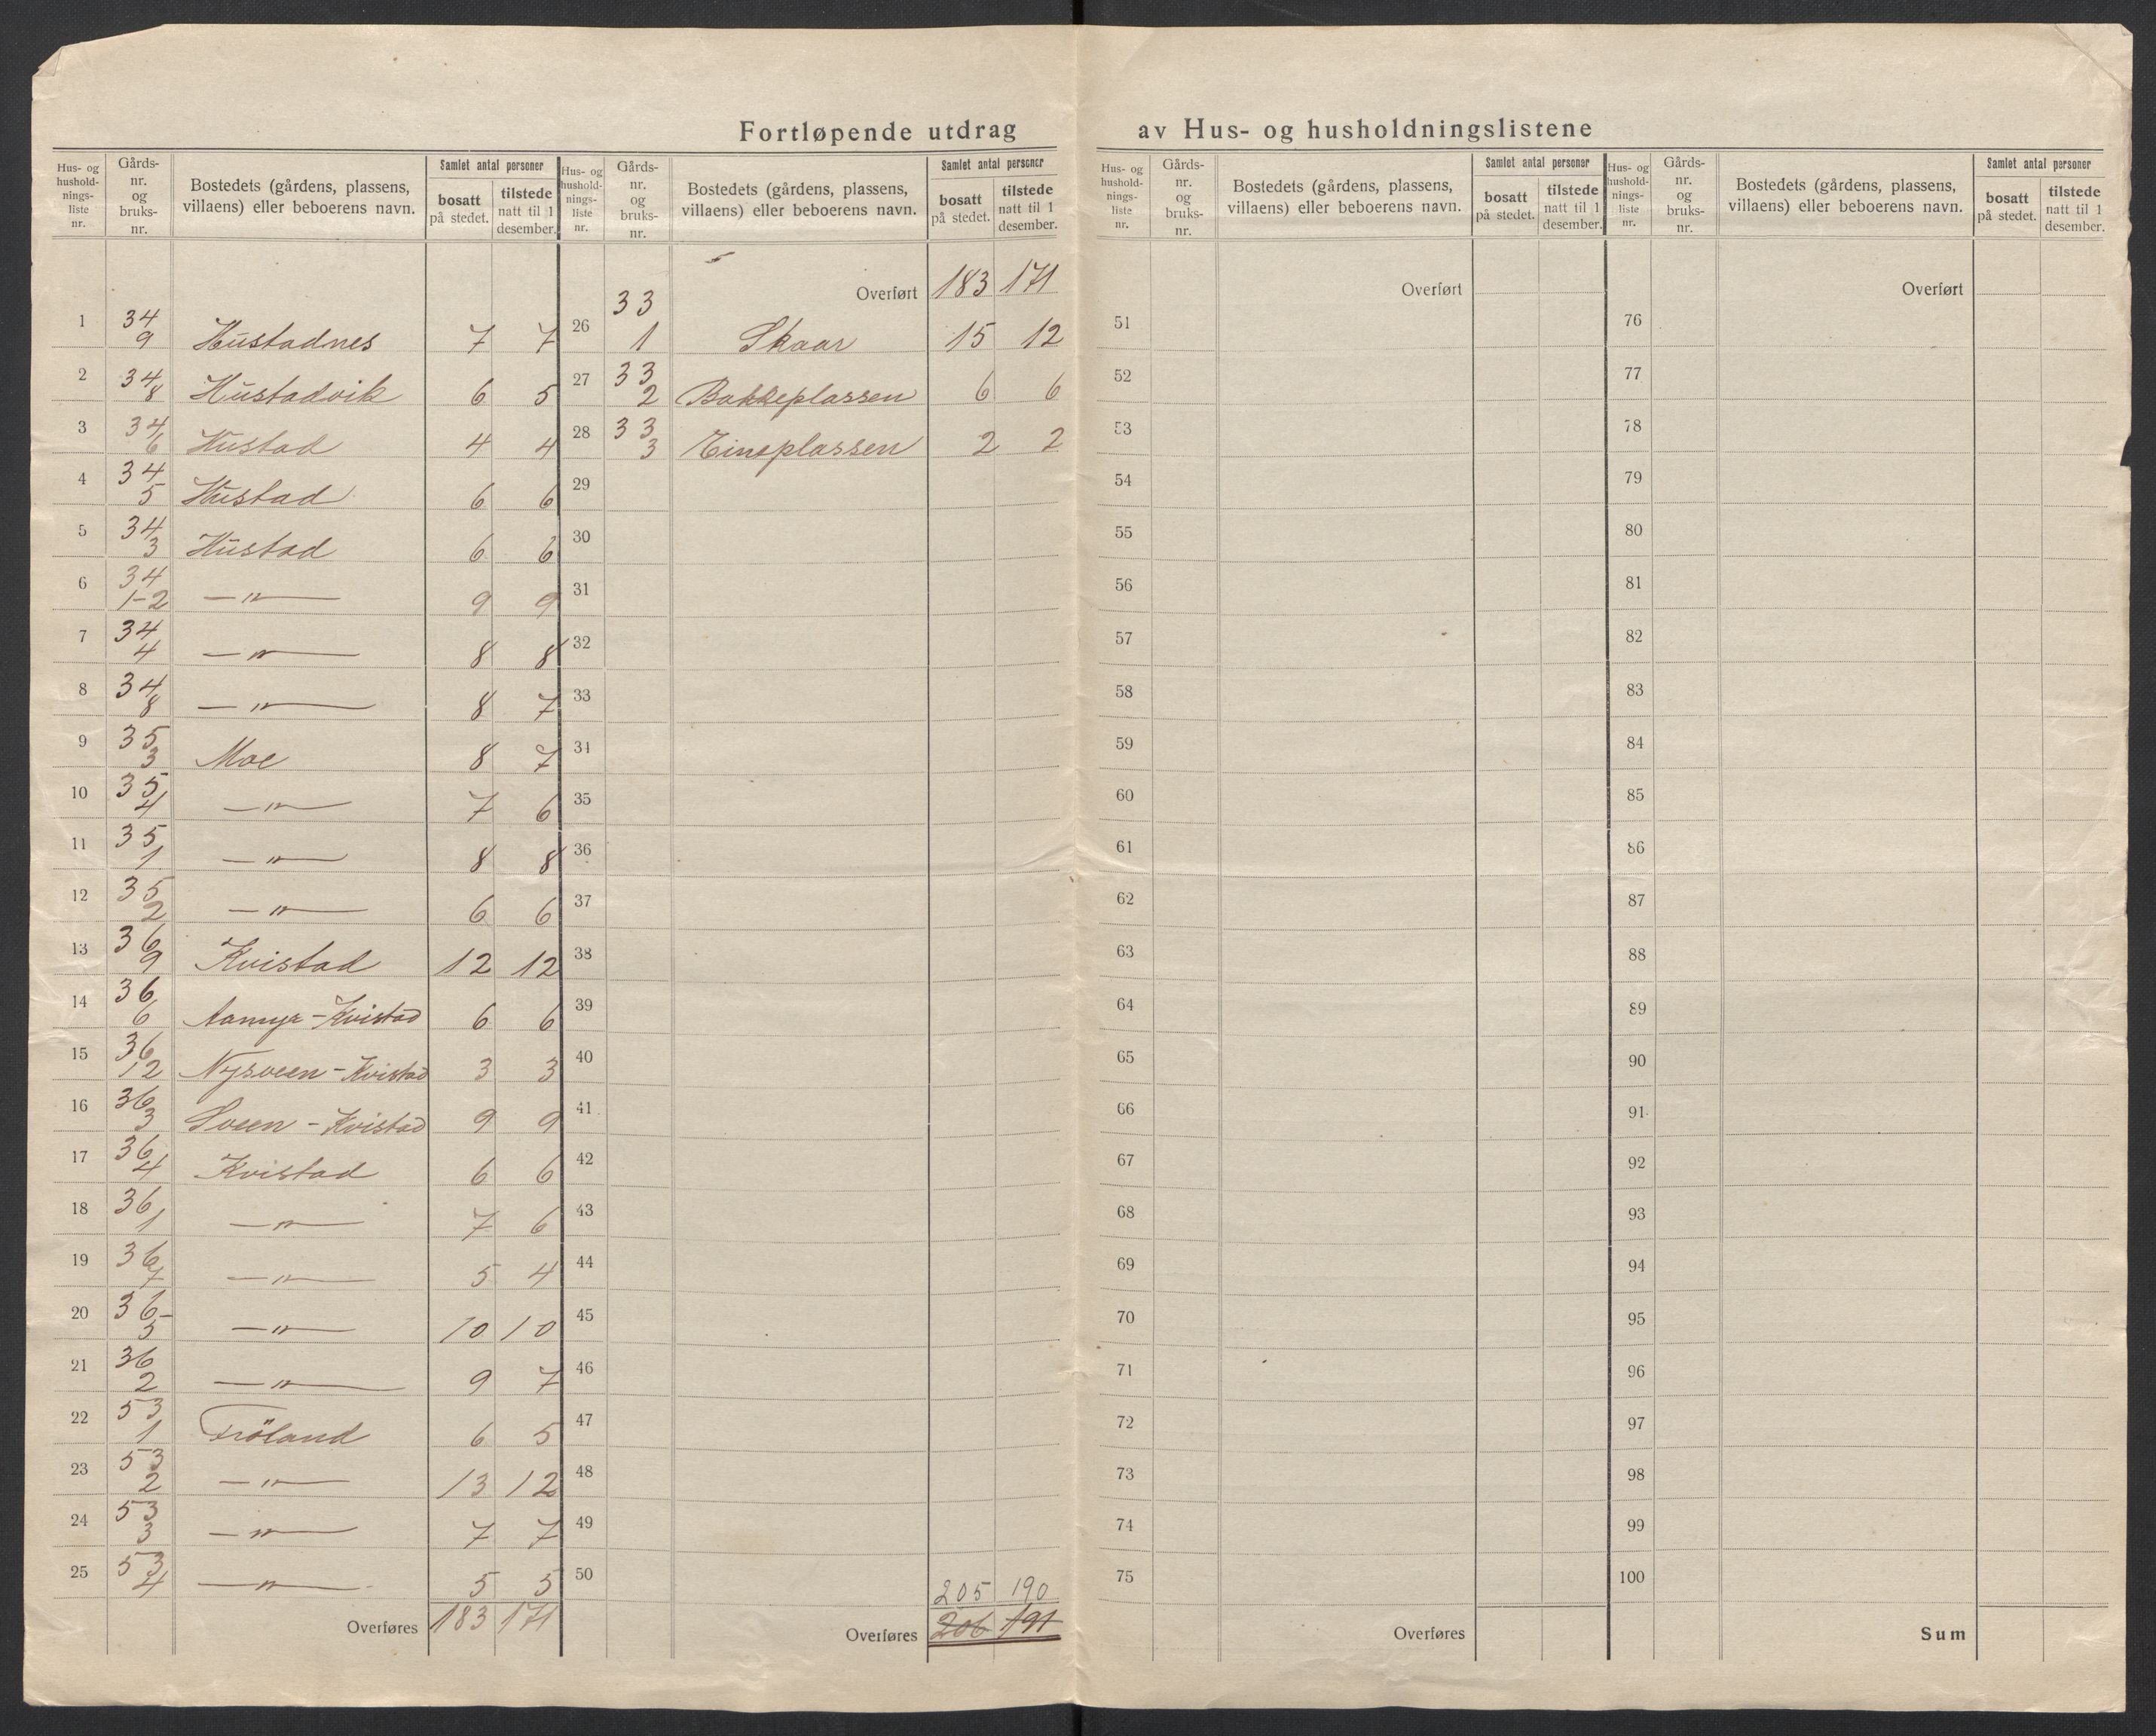 Fortløpende utdrag av Hus- og husholdningslistene
Hus- og hushold- nings- liste nr. | Gårds- nr. og bruks- nr. | Bostedets (gårdens, plassens, villaens) eller beboerens navn. | Samlet antal personer | bosatt på stedet. | tilstede natt til 1 desember.
1 34/9 Hustadnes 7 7
2 34/8 Hustadvik 6 5
3 34/6 Hustad 4 4
4 34/5 Hustad 6 6
5 34/3 Hustad 6 6
6 34/1-2 —"— 9 9
7 34/4 —"— 8 8
8 34/8 —"— 8 7
9 35/3 Moe 8 7
10 35/4 —"— 7 6
11 35/1 —"— 8 8
12 35/2 —"— 6 6
13 36/9 Kvistad 12 12
14 36/6 Aamyr-Kvistad 6 6
15 36/12 Nysveen-Kvistad 3 3
16 36/3 Sveen-Kvistad 9 9
17 36/4 Kvistad 6 6
18 36/1 —"— 7 6
19 36/7 —"— 5 4
20 36/5 —"— 10 10
21 36/2 —"— 9 7
22 53/1 Fröland 6 5
23 53/2 —"— 13 12
24 53/3 —"— 7 7
25 53/4 —"— 5 5
Overføres 183 171
Hus- og hushold- nings- liste nr. | Gårds- nr. og bruks- nr. | Bostedets (gårdens, plassens, villaens) eller beboerens navn. | Samlet antal personer | bosatt på stedet. | tilstede natt til 1 desember.
Overført 183 171
26 33/1 Skaar 15 12
27 33/2 Bakkeplassen 6 6
28 33/3 2 2
29
30
31
32
33
34
35
36
37
38
39
40
41
42
43
44
45
46
47
48
49
50
205 190
Overføres 206 191
Hus- og hushold- nings- liste nr. | Gårds- nr. og bruks- nr. | Bostedets (gårdens, plassens, villaens) eller beboerens navn. | Samlet antal personer | bosatt på stedet. | tilstede natt til 1 desember.
Overført
51
52
53
54
55
56
57
58
59
60
61
62
63
64
65
66
67
68
69
70
71
72
73
74
75
Overføres
Hus- og hushold- nings- liste nr. | Gårds- nr. og bruks- nr. | Bostedets (gårdens, plassens, villaens) eller beboerens navn. | Samlet antal personer | bosatt på stedet. | tilstede natt til 1 desember.
Overført
76
77
78
79
80
81
82
83
84
85
86
87
88
89
90
91
92
93
94
95
96
97
98
99
100
Sum